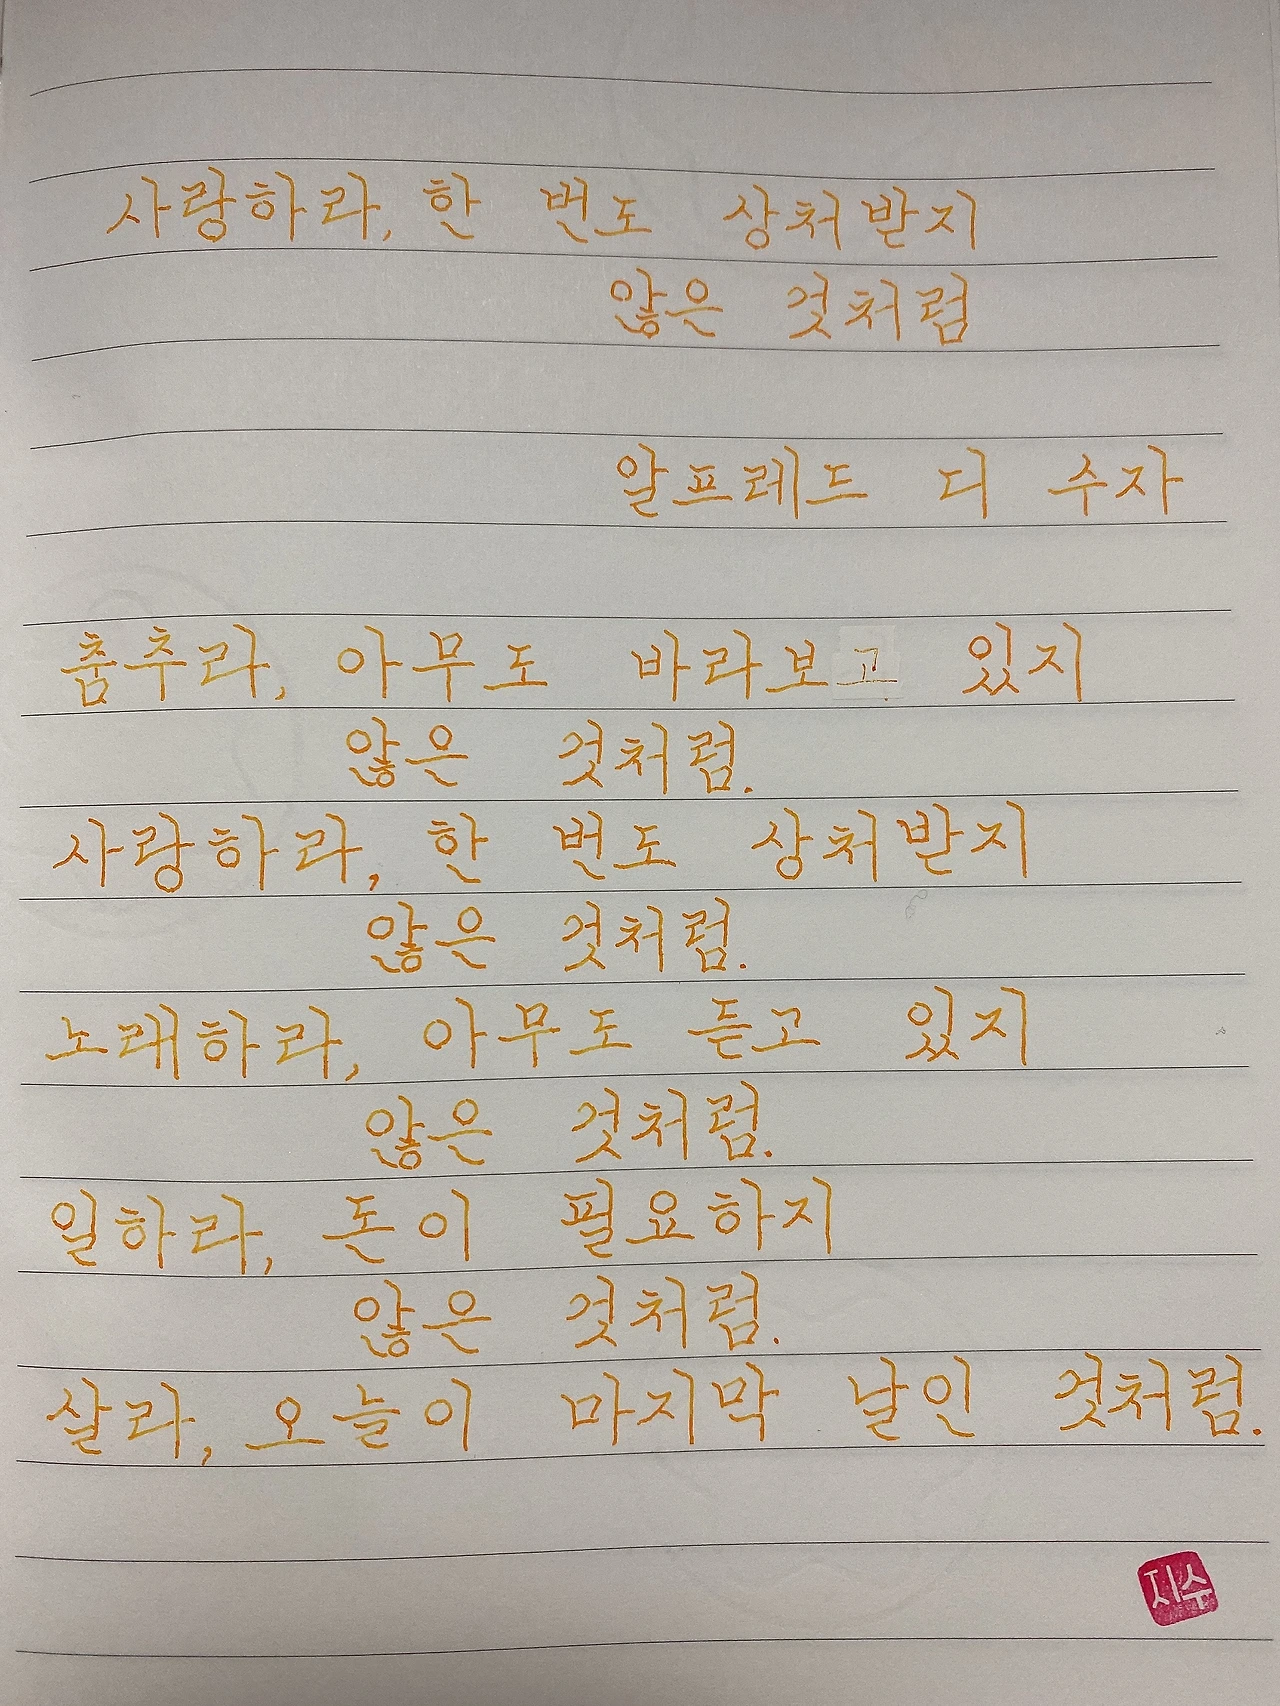 사랑하라, 한 번도 상처받지
않은 것처럼
알프레드 디 수자
춤추라, 아무도 바라보고 있지
않은 것처럼.
사랑하라, 한 번도 상처받지
않은 것처럼.
노래하라, 아무도 듣고 있지
않은 것처럼.
일하라, 돈이 필요하지
않은 것처럼.
살라, 오늘이 마지막 날인 것처럼.
지수